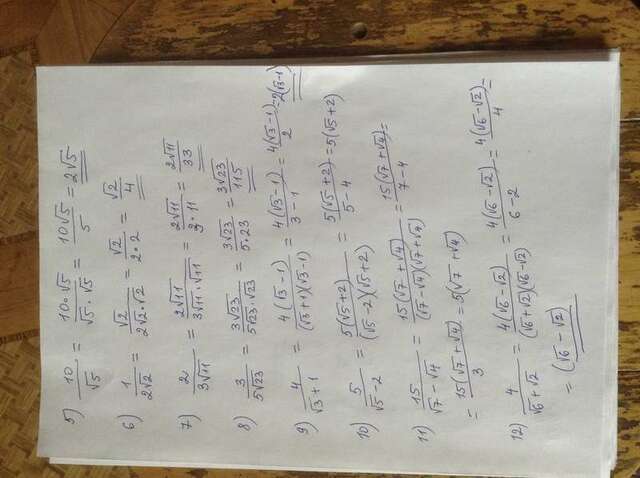 5) 10/√5 = 10·√5/√5·√5 = 10√5/5 = 2√5
6) 1/2√2 = √2/2√2·√2 = √2/2·2 = √2/4
7) 2/3√11 = 2√11/3√11·√11 = 2√11/3·11 = 2√11/33
8) 3/5√23 = 3√23/5√23·√23 = 3√23/5·23 = 3√23/115
9) 4/√3+1 = 4(√3-1)/(√3+1)(√3-1) = 4(√3-1)/3-1 = 4(√3-1)/2 = 2(√3-1)
10) 5/√5-2 = 5(√5+2)/(√5-2)(√5+2) = 5(√5+2)/5-4 = 5(√5+2)
11) 15/√7-√4 = 15(√7+√4)/(√7-√4)(√7+√4) = 15(√7+√4)/7-4 =
= 15(√7+√4)/3 = 5(√7+√4)
12) 4/√6+√2 = 4(√6-√2)/(√6+√2)(√6-√2) = 4(√6-√2)/6-2 = 4(√6-√2)/4 =
= (√6-√2)